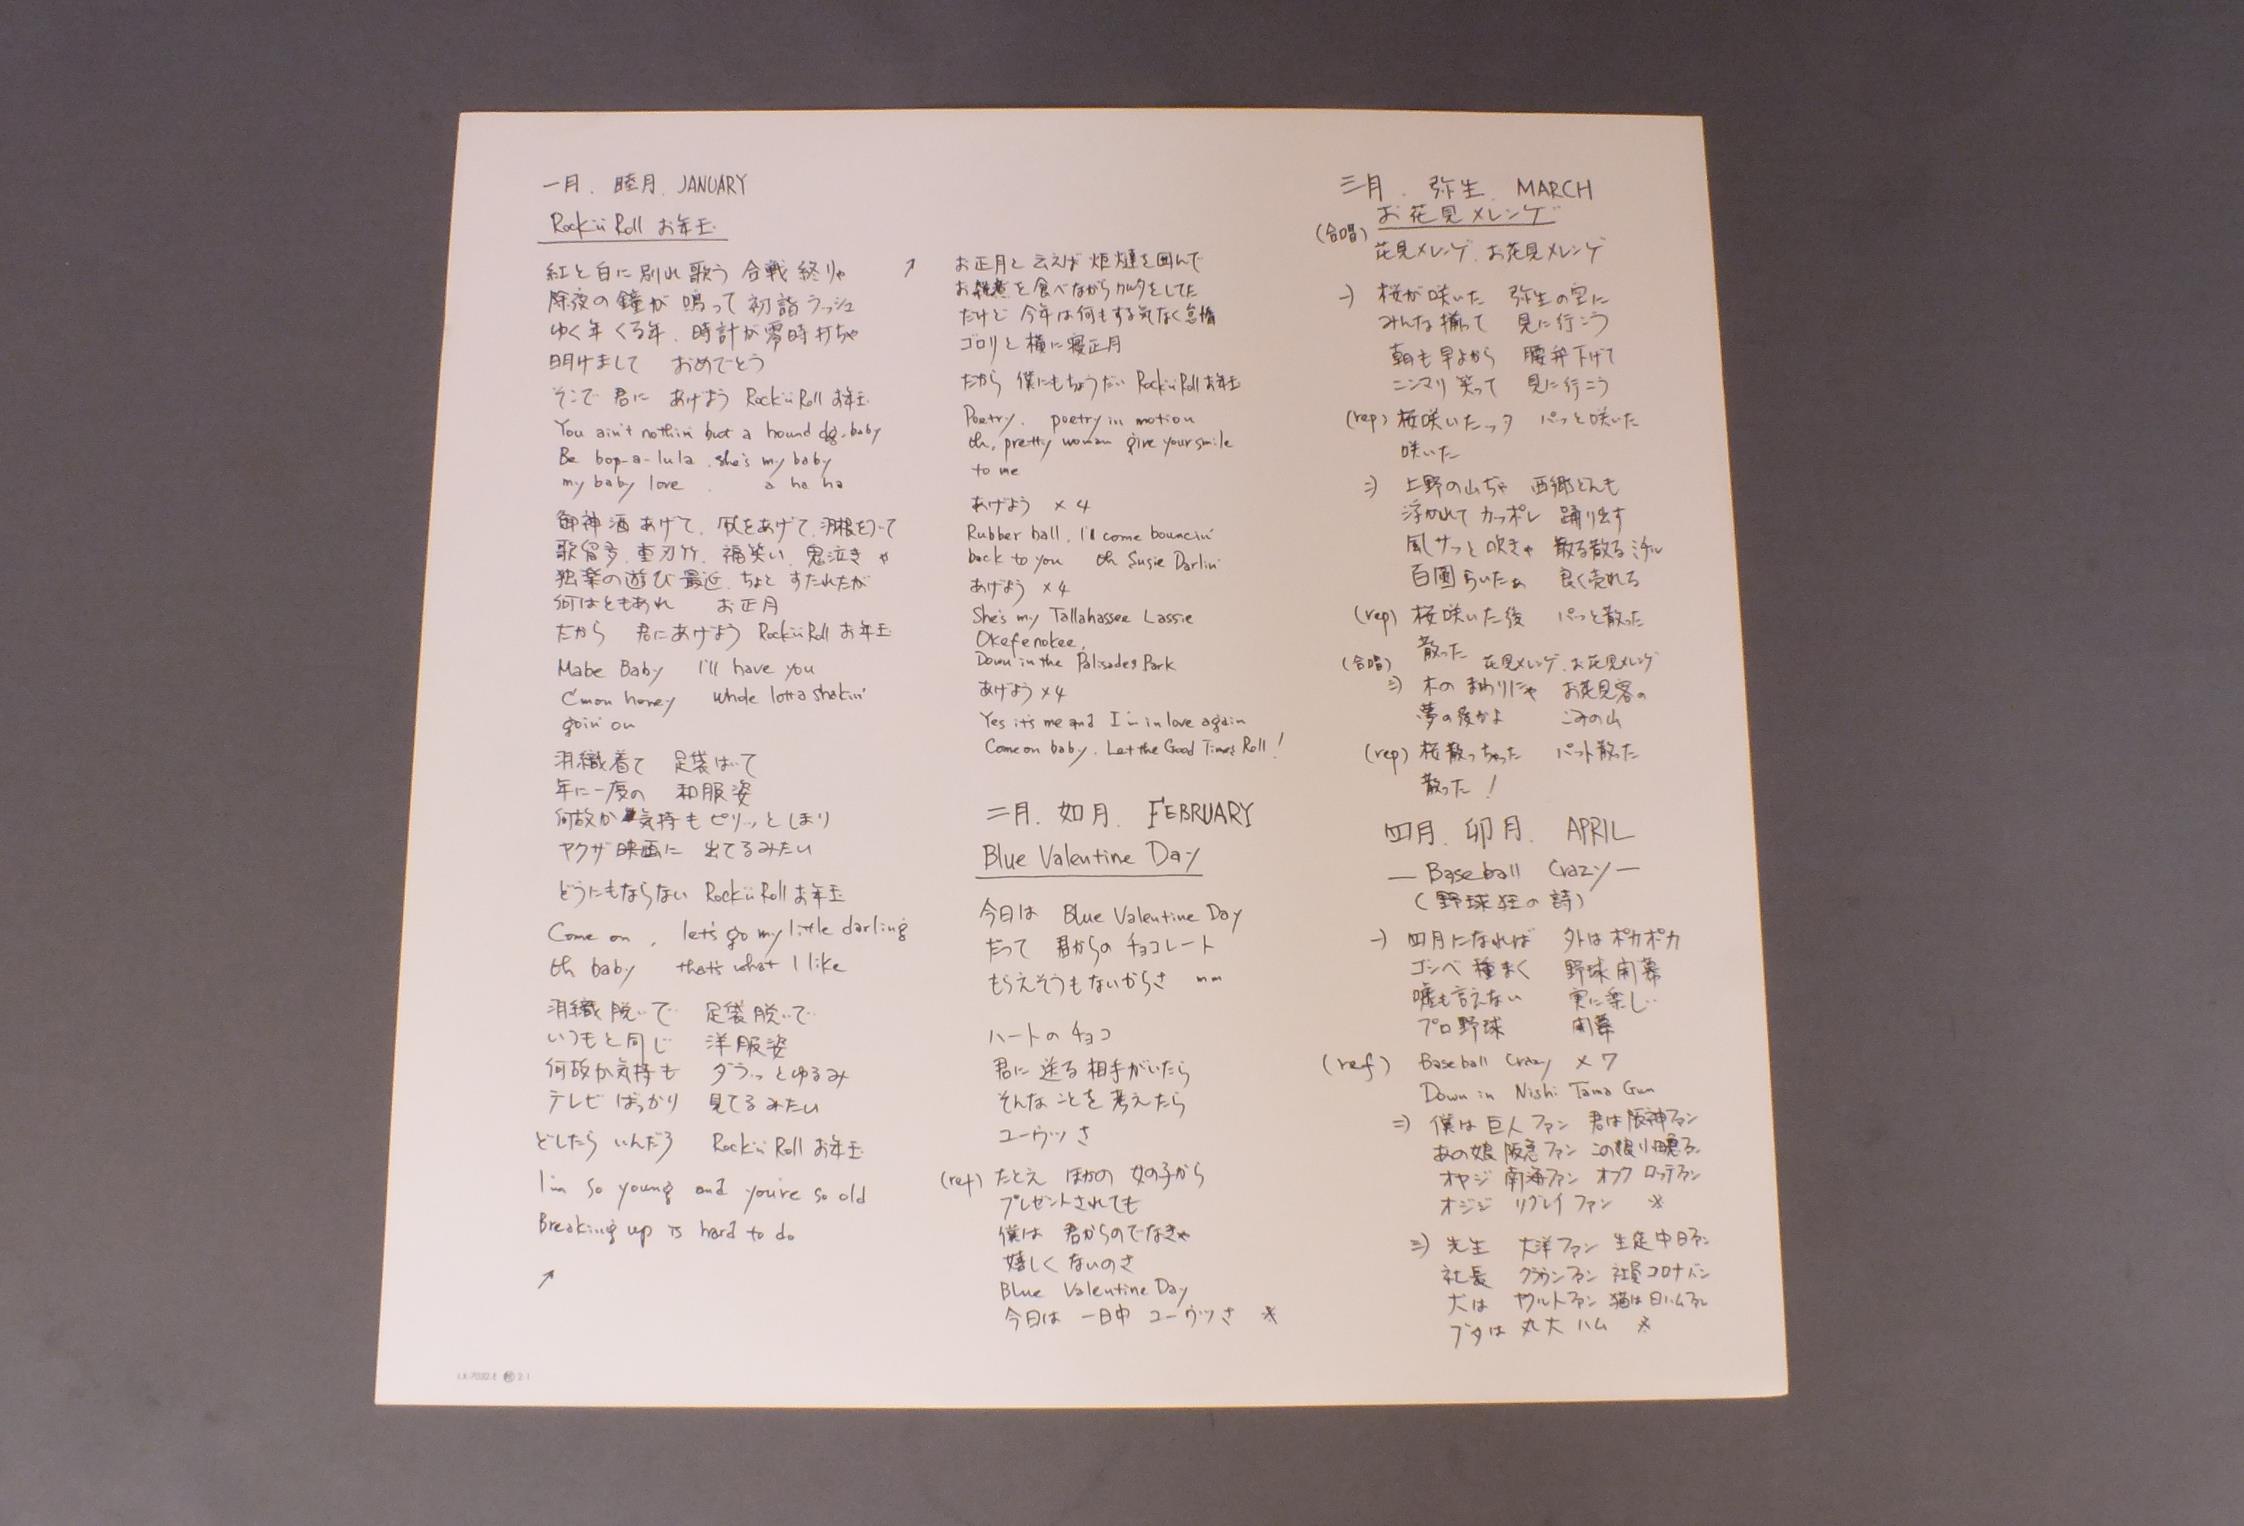 一月. 睦月. JANUARY
Rock'n Roll お年玉
紅と白に別れ歌う 合戦終りゃ
除夜の鐘が 鳴って 初詣ラッシュ
ゆく年 くる年. 時計が零時打ちゃ
明けまして おめでとう
そこで 君に あげよう Rock'n Roll お年玉
You ain't nothin' but a hound dog, baby
Be bop-a-lula, she's my baby
my baby love. a ha ha
御神酒あげて. 凧をあげて. 羽根をついて
歌留多. 重刃竹. 福笑い. 鬼泣きゃ
独楽の遊び 最近. ちょと すたれたが
何はともあれ お正月
だから 君にあげよう Rock'n Roll お年玉
Mabe Baby I'll have you
C'mon honey whole lotta shakin'
goin' on
羽織着て 足袋はいて
年に一度の 和服姿
何故か気持も ピリッとしまり
ヤクザ映画に 出てるみたい
どうにもならない Rock'n Roll お年玉
Come on, let's go my little darling
Oh baby that's what I like
羽織脱いで 足袋脱いで
いつもと同じ 洋服姿
何故か気持も ダラッとゆるみ
テレビばっかり 見てるみたい
どしたら いんだろ Rock'n Roll お年玉
I'm so young and you're so old
Breaking up is hard to do
↗
↗ お正月と云えば 炬燵を囲んで
お雑煮を食べながらカルタをしてた
だけど 今年は何もする気なく怠惰
ゴロリと横に寝正月
だから 僕にもちょうだい Rock'n Roll お年玉
Poetry, poetry in motion
Oh, pretty woman give your smile
to me
あげよう ×4
Rubber ball, I'll come bouncin'
back to you Oh Susie Darlin'
あげよう ×4
She's my Tallahassee Lassie
Okefenokee,
Down in the Palisades Park
あげよう×4
Yes it's me and I'm in love again
Come on baby. Let the Good Times Roll!
二月. 如月. FEBRUARY
Blue Valentine Day
今日は Blue Valentine Day
だって 君からの チョコレート
もらえそうもないからさ mm
ハートのチョコ
君に送る相手がいたら
そんなことを考えたら
ユーウツさ
(ref) たとえ ほかの 女の子から
プレゼントされても
僕は 君からのでなきゃ
嬉しくないのさ
Blue Valentine Day
今日は 一日中 ユーウツさ ※
三月. 弥生. MARCH
お花見メレンゲ
(合唱) 花見メレンゲ. お花見メレンゲ
一) 桜が咲いた 弥生の空に
みんな揃って 見に行こう
朝も早よから 腰弁下げて
ニンマリ笑って 見に行こう
(rep) 桜咲いたッタ パッと咲いた
咲いた
二) 上野の山ぢゃ 西郷どんも
浮かれてカッポレ 踊り出す
風サッと吹きゃ 散る散るミチル
百圓らいたぁ 良く売れる
(rep) 桜咲いた後 パッと散った
散った
(合唱) 花見メレンゲ. お花見メレンゲ
三) 木のまわりにゃ お花見客の
夢の後かよ ごみの山
(rep) 桜散っちゃった パット散った
散った!
四月. 卯月. APRIL
— Baseball Crazy —
(野球狂の詩)
一) 四月になれば 外はポカポカ
ゴンベ種まく 野球開幕
嘘も言えない 実に楽しい
プロ野球 開幕
(ref) Baseball Crazy ×7
Down in Nishi Tama Gun
二) 僕は巨人ファン 君は阪神ファン
あの娘阪急ファン この娘
オヤジ 南海ファン オフク ロッテファン
オジジ リグレイ ファン ※
三) 先生 大洋ファン 生徒中日ファン
社長 クラウンファン 社員コロナバン
犬は ヤクルトファン 猫は日ハムファン
ブタは 丸大ハム ※
LX-7032-E 2-1